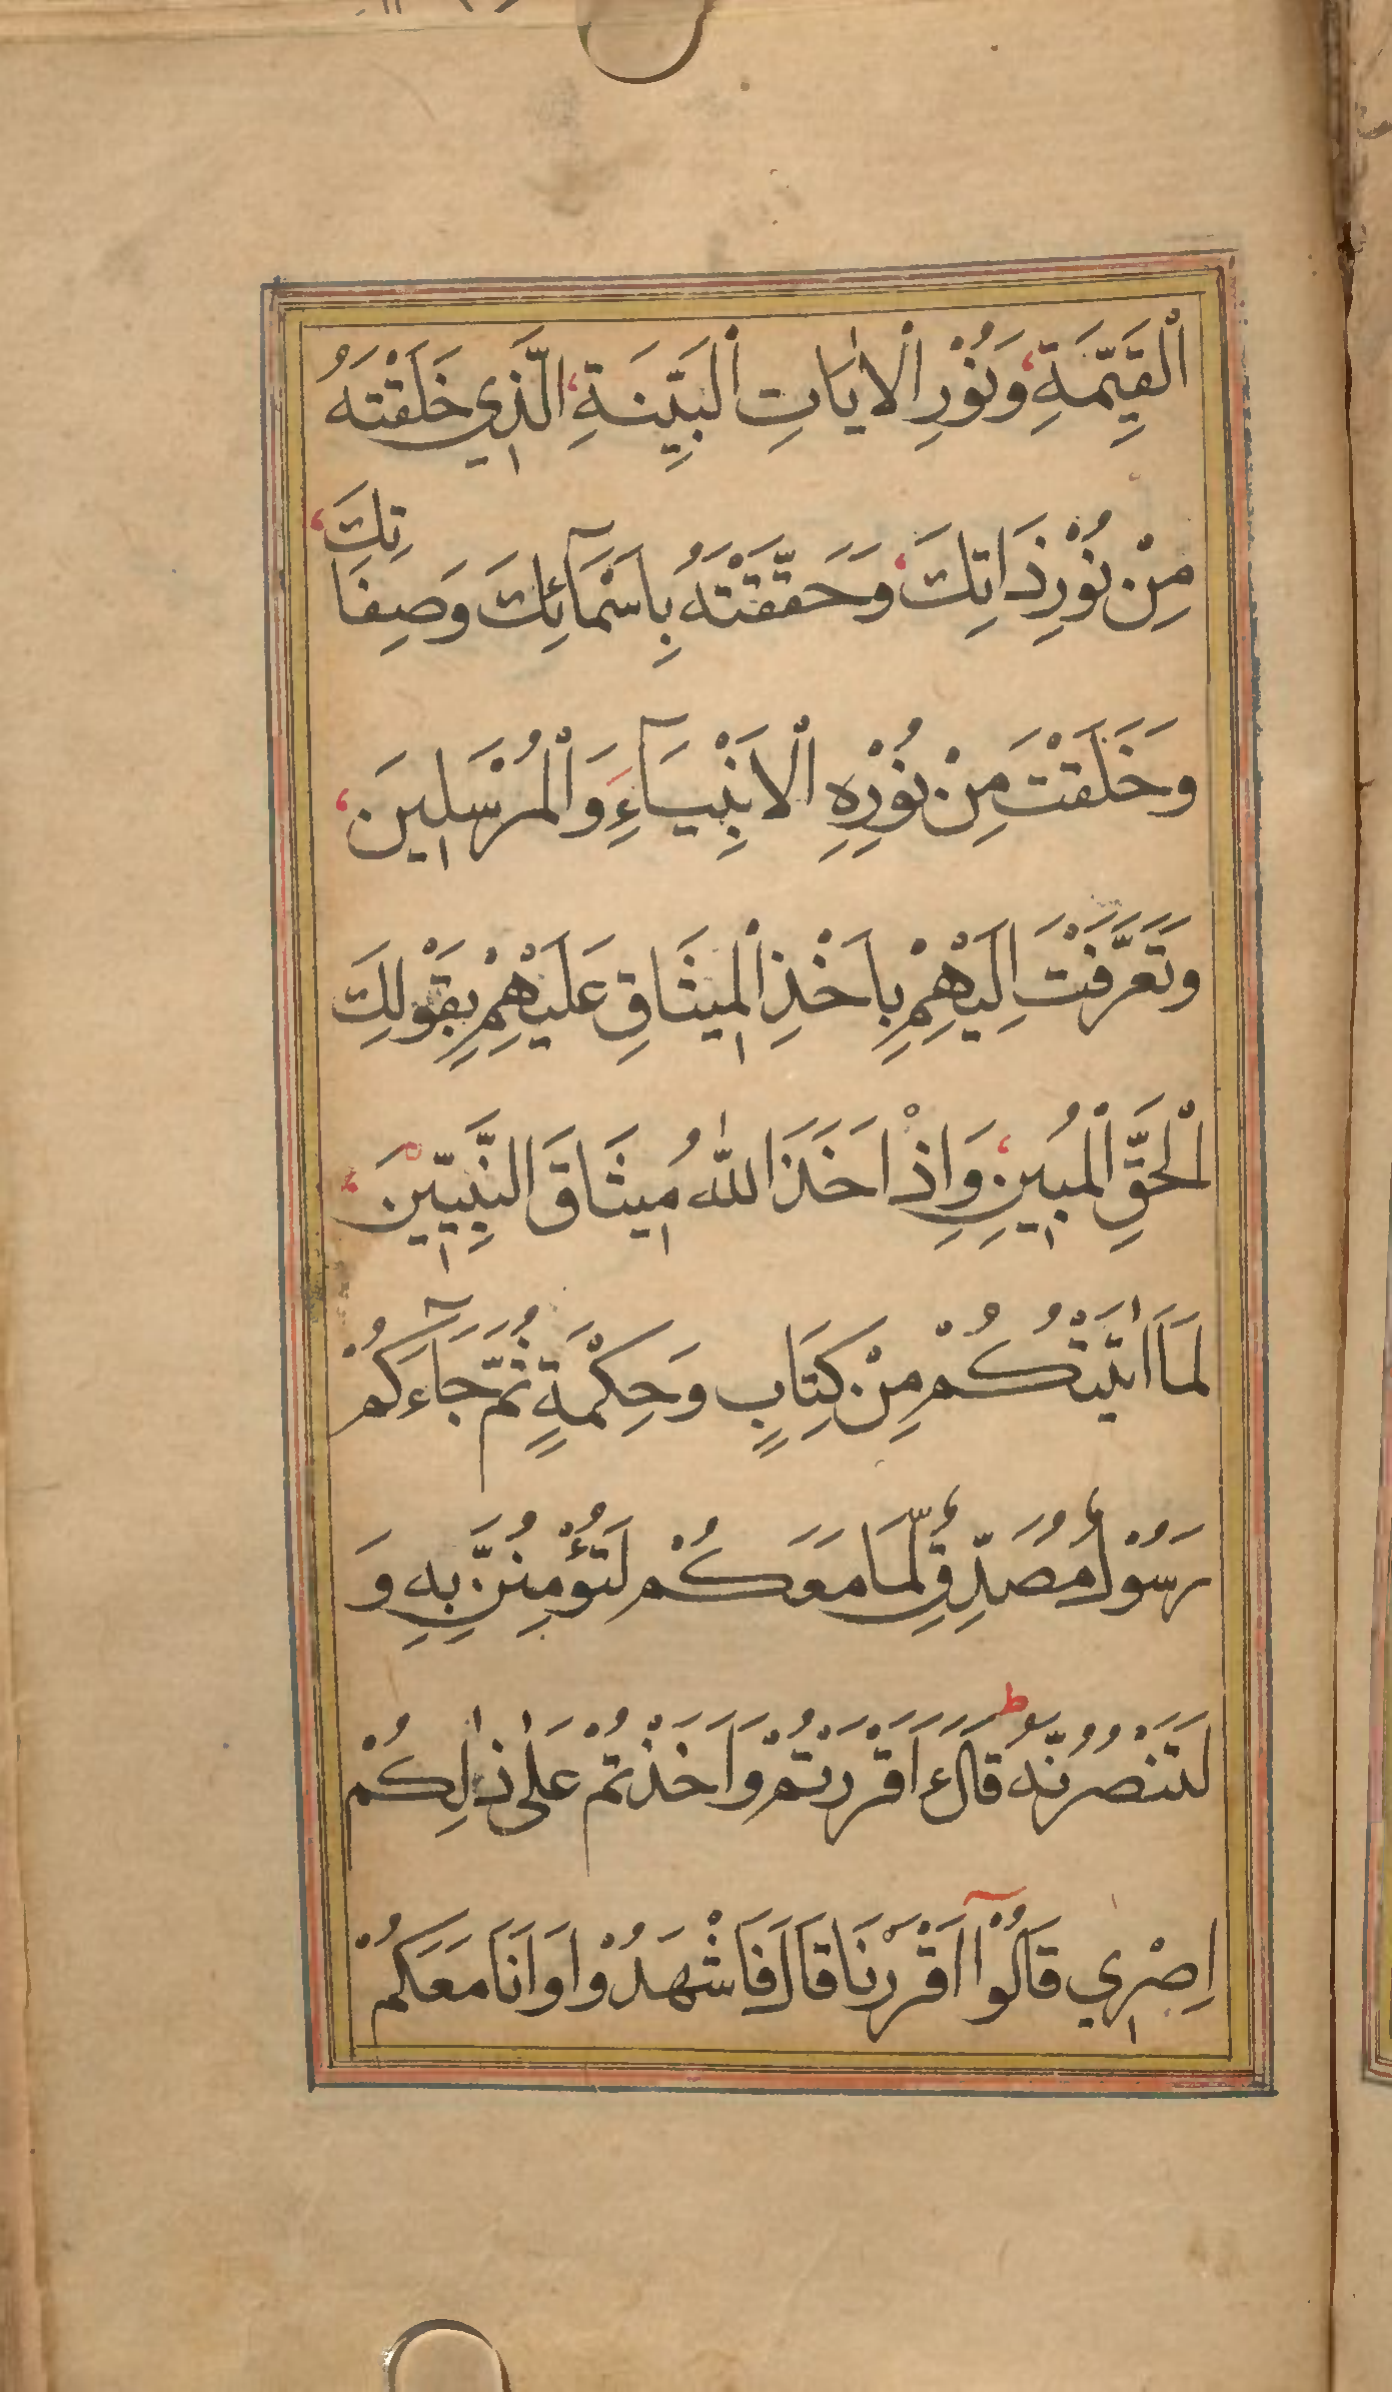 الْقَيِّمَةِ، وَنُوْرِ الْاٰيَاتِ الْبَيِّنَةِ، الَّذِي خَلَقْتَهُ
مِنْ نُوْرِ ذَاتِكَ، وَحَقَّقْتَهُ بِاَسْمَآئِكَ وَصِفَاتِكَ،
وَخَلَقْتَ مِنْ نُوْرِهِ الْاَنْبِيَآءَ وَالْمُرْسَلِينَ،
وَتَعَرَّفْتَ اِلَيْهِمْ بِاَخْذِ الْمِيثَاقِ عَلَيْهِمْ بِقَوْلِكَ
الْحَقِّ الْمُبِينِ، وَاِذْ اَخَذَ اللّٰهُ مِيثَاقَ النَّبِيِّينَ،
لَمَا اٰتَيْتُكُمْ مِنْ كِتَابٍ وَحِكْمَةٍ ثُمَّ جَآءَكُمْ
رَسُوْلٌ مُصَدِّقٌ لِّمَا مَعَكُمْ لَتُؤْمِنُنَّ بِهِ وَ
لَتَنْصُرُنَّهُ ط قَالَ ءَاَقْرَرْتُمْ وَاَخَذْتُمْ عَلٰى ذٰلِكُمْ
اِصْرِي قَالُوْآ اَقْرَرْنَا قَالَ فَاشْهَدُوْا وَاَنَا مَعَكُمْ